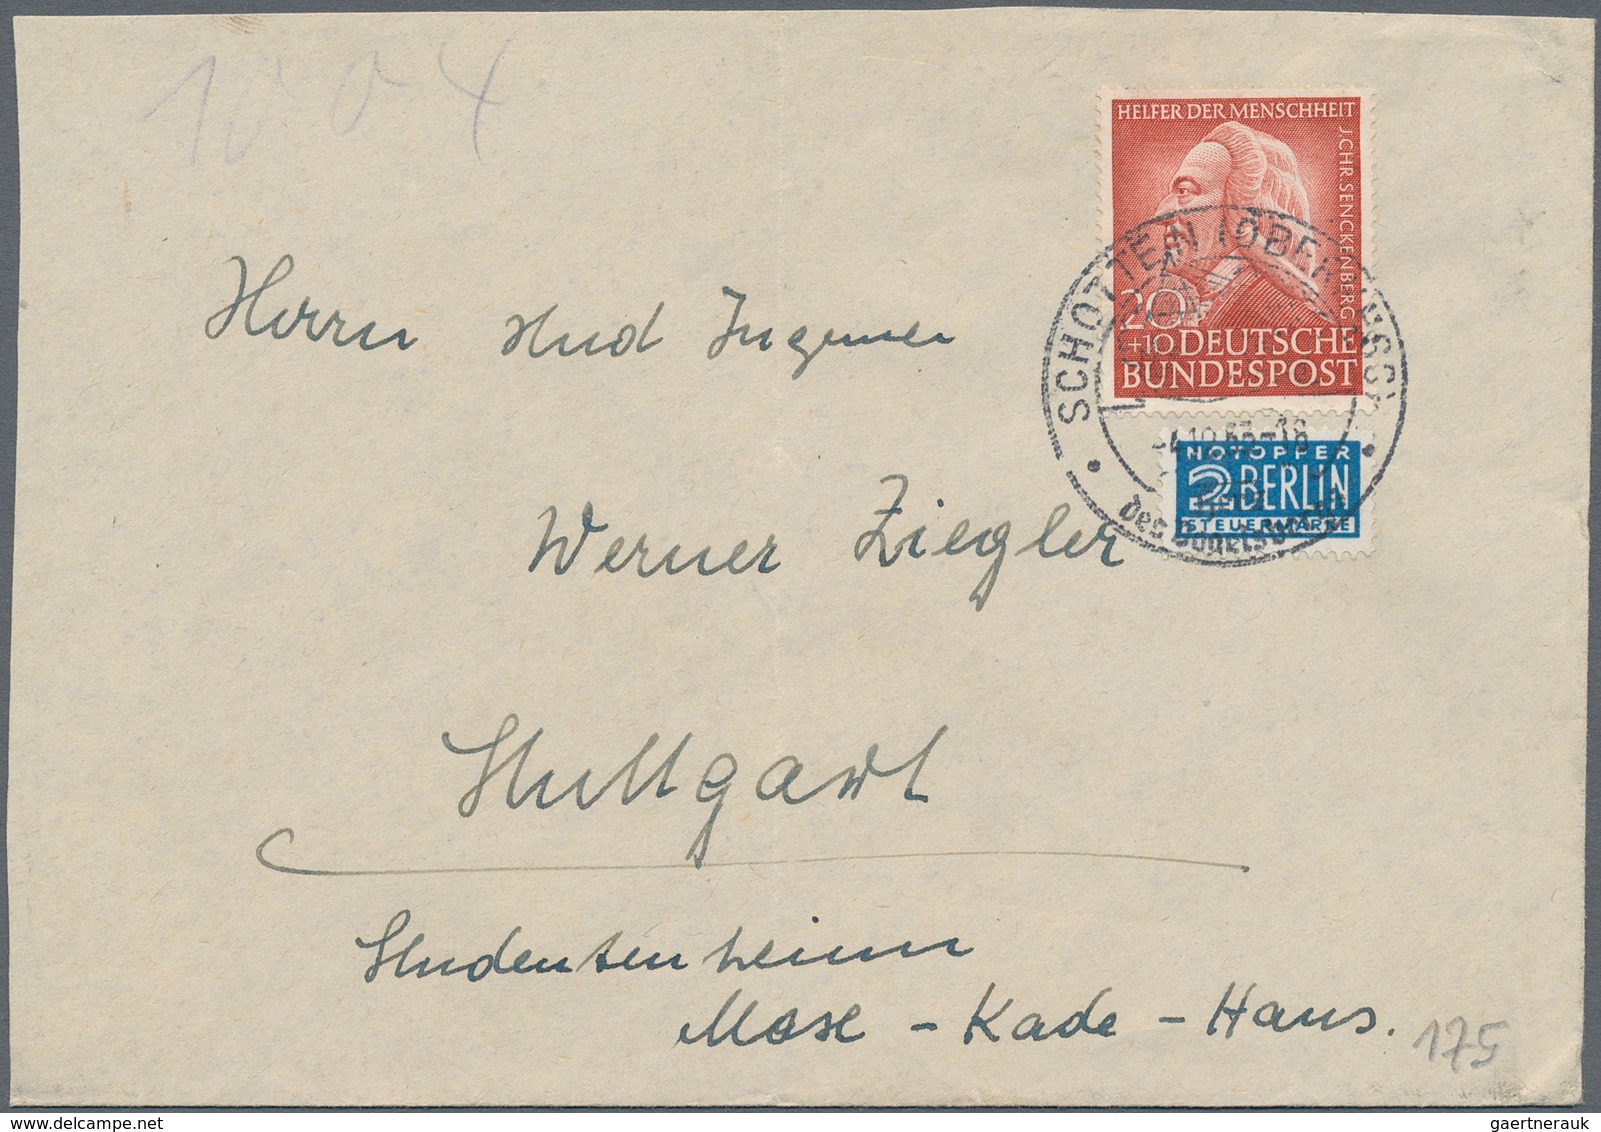 1004
HELFER DER MENSCHHEIT
J.CHR.SENCKENBERG
20
+10 DEUTSCHE
BUNDESPOST
SCHOTTEN (OBERHESS)
-4.12.53-18
des Vogelsberges
NOTOPFER
2 BERLIN
STEUERMARKE
Herrn stud Ingenieur
Werner Ziegler
Stuttgart
Studentenheim
Max - Kade - Haus.
175
www.delcampe.net
gaertnerauk